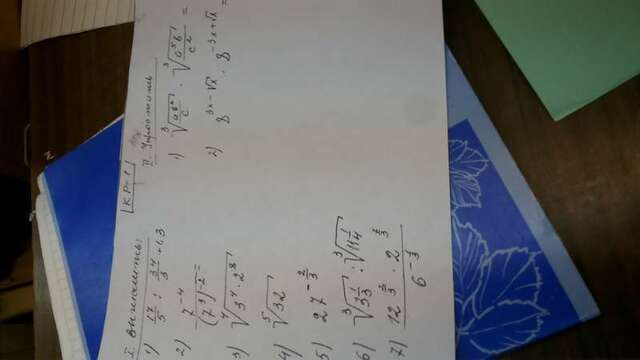 КР-1
I. Вычислить:
1) 17/5 : 34/3 + 1,3
2) 7^{-4} / (7^3)^{-2} =
3) ∜(3^4 · 2^8)
4) ⁵√32
5) 27^{-2/3}
6) ∛(3 1/3) : ∛(11 1/4)
7) 12^{2/3} · 2^{2/3} / 6^{-1/3}
II. Упростить
1) ∛(ab²/c) · ∛(a⁵b/c²) =
2) 8^{3x-√x} · 8^{-3x+√x} =